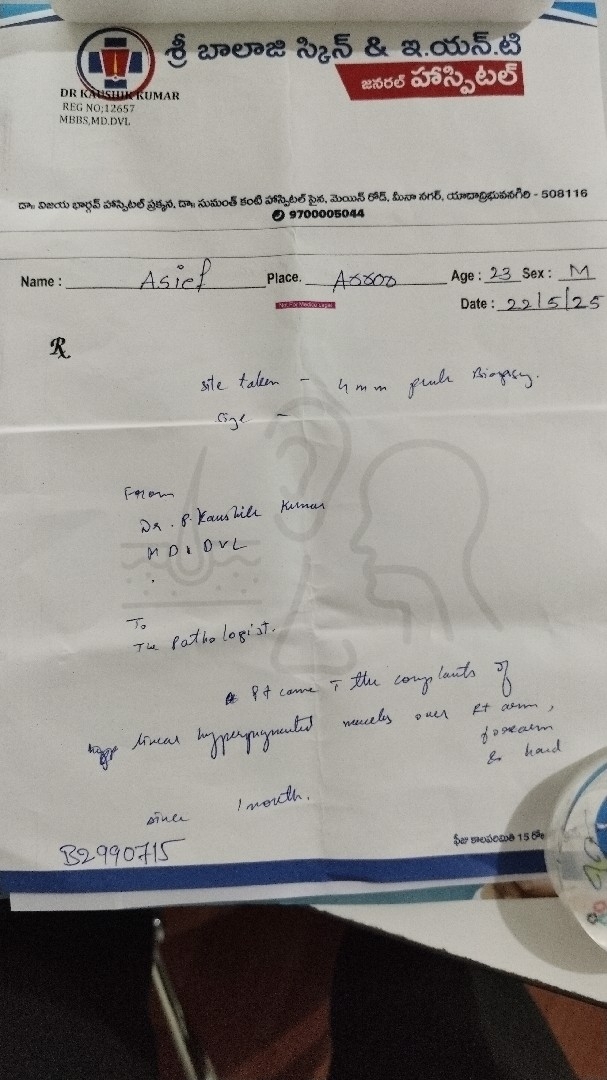 శ్రీ బాలాజి స్కిన్ & ఇ.యన్.టి
జనరల్ హాస్పిటల్
DR KAUSHIK KUMAR
REG NO;12657
MBBS,MD.DVL
డా॥ విజయ భార్గవ్ హాస్పిటల్ ప్రక్కన, డా॥ సుమంత్ కంటి హాస్పిటల్ పైన, మెయిన్ రోడ్, మీనా నగర్, యాదాద్రిభువనగిరి - 508116
9700005044
Name : Asief Place. Age : 23 Sex : M
Not For Medico Legal
Date : 22/5/25
Rx
site taken - 4mm punch Biopsy.
Size -
From
Dr. P. Kaushik Kumar
MD, DVL
To
The Pathologist.
Pt came c̄ the complants of
linear hyperpigmented macules over Rt arm,
forearm
& hand
since 1 month.
B2990715
ఫీజు కాలపరిమితి 15 రో